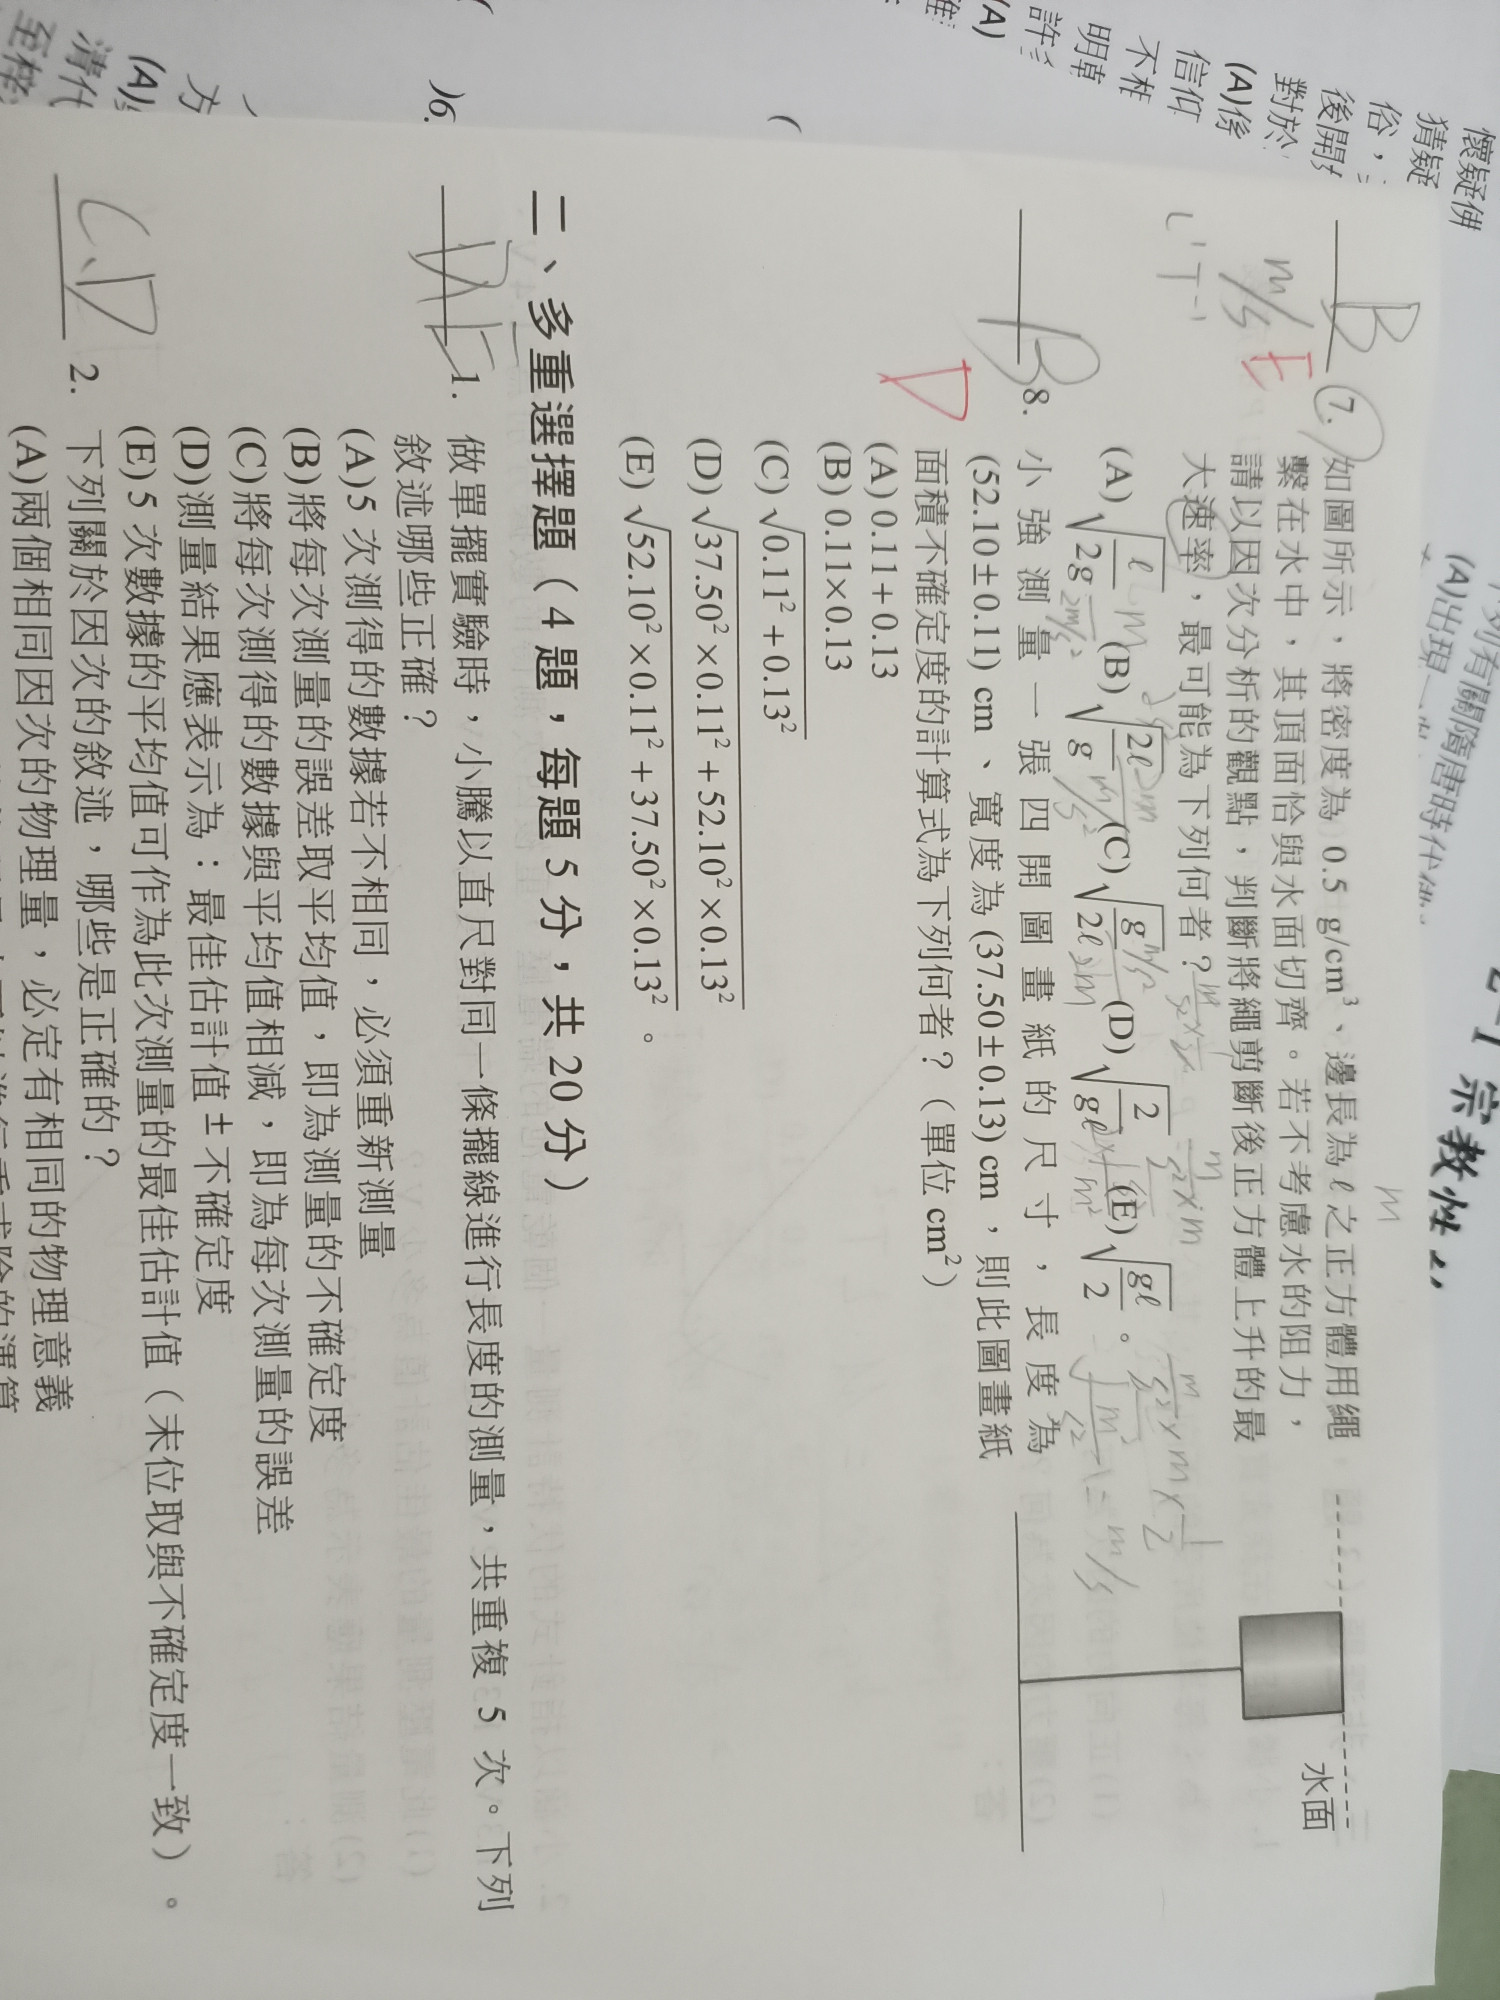 懷疑佛
猜疑
俗，
後開
對於
(A)係
信仰
不相
明車
許多
(A)
(A)出現一
2-1 宗教性
B
E
m/s
L¹T⁻¹
m
7. 如圖所示，將密度為 0.5 g/cm³、邊長為 ℓ 之正方體用繩
繫在水中，其頂面恰與水面切齊。若不考慮水的阻力，
請以因次分析的觀點，判斷將繩剪斷後正方體上升的最
大速率，最可能為下列何者？
(A) √(ℓ/2g) (B) √(2ℓ/g) (C) √(g/2ℓ) (D) √(2/gℓ) (E) √(gℓ/2) 。
水面
B
D
8. 小強測量一張四開圖畫紙的尺寸，長度為
(52.10±0.11) cm、寬度為 (37.50±0.13) cm，則此圖畫紙
面積不確定度的計算式為下列何者？（單位 cm²）
(A) 0.11+0.13
(B) 0.11×0.13
(C) √(0.11²+0.13²)
(D) √(37.50²×0.11²+52.10²×0.13²)
(E) √(52.10²×0.11²+37.50²×0.13²) 。
二、多重選擇題（4 題，每題 5 分，共 20 分）
1. 做單擺實驗時，小騰以直尺對同一條擺線進行長度的測量，共重複 5 次。下列
敘述哪些正確？
(A) 5 次測得的數據若不相同，必須重新測量
(B) 將每次測量的誤差取平均值，即為測量的不確定度
(C) 將每次測得的數據與平均值相減，即為每次測量的誤差
(D) 測量結果應表示為：最佳估計值±不確定度
(E) 5 次數據的平均值可作為此次測量的最佳估計值（末位取與不確定度一致）。
C、D
2. 下列關於因次的敘述，哪些是正確的？
(A) 兩個相同因次的物理量，必定有相同的物理意義
)6.
方
(A)
清代